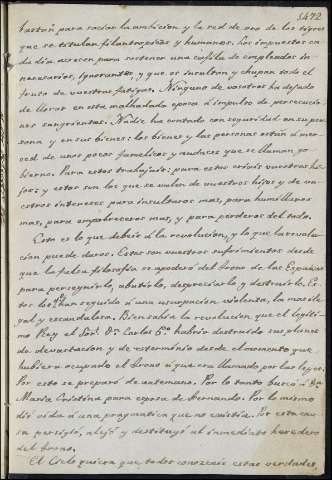 5472
bastan para saciar la ambicion y la sed de oro de los tigres
que se titulan filantropicos y humanos. Los impuestos ca
da dia acrecen para sostener una cafila de empleados in-
necesarios, ignorantes y que os insultan y chupan todo el
fruto de vuestras fatigas. Ninguno de vosotros ha dejado
de llorar en esta malhadada epoca á impulso de persecucio-
nes sangrientas. Nadie ha contado con seguridad en su per-
sona y en sus bienes: los bienes y las personas están á mer-
ced de unos pocos famelicos y audaces que se llaman go-
bierno. Para estos trabajais: para estos criais vuestros hi-
jos: y estos son los que se valen de vuestros hijos y de vu-
estros intereses para insultaros mas, para humillaros
mas, para empobreceros mas, y para perderos del todo.
Esto es lo que debeis á la revolucion, y lo que la revolu-
cion puede daros. Estos son vuestros sufrimientos desde
que la falsa filosofia se apoderó del trono de las Españas
para perseguirlo, abatirlo, despreciarlo y destruirlo. Es-
tos les han seguido á una usurpacion violenta, la mas ile-
gal y escandalosa. Bien sabia la revolucion que el legiti-
mo Rey el Sor. Dn. Carlos 5º. habria destruido sus planes
de devastacion y de esterminio desde el momento que
hubiera ocupado el trono á que era llamado por las leyes.
Por esto se preparó de antemano. Por lo tanto buscó á Da.
Maria Cristina para esposa de Fernando. Por lo mismo
dió vida á una pragmatica que no existia. Por esta cau-
sa persigió, alejó y destituyó al inmediato heredero
del trono.
El Cielo quiera que todos conozcais estas verdades,